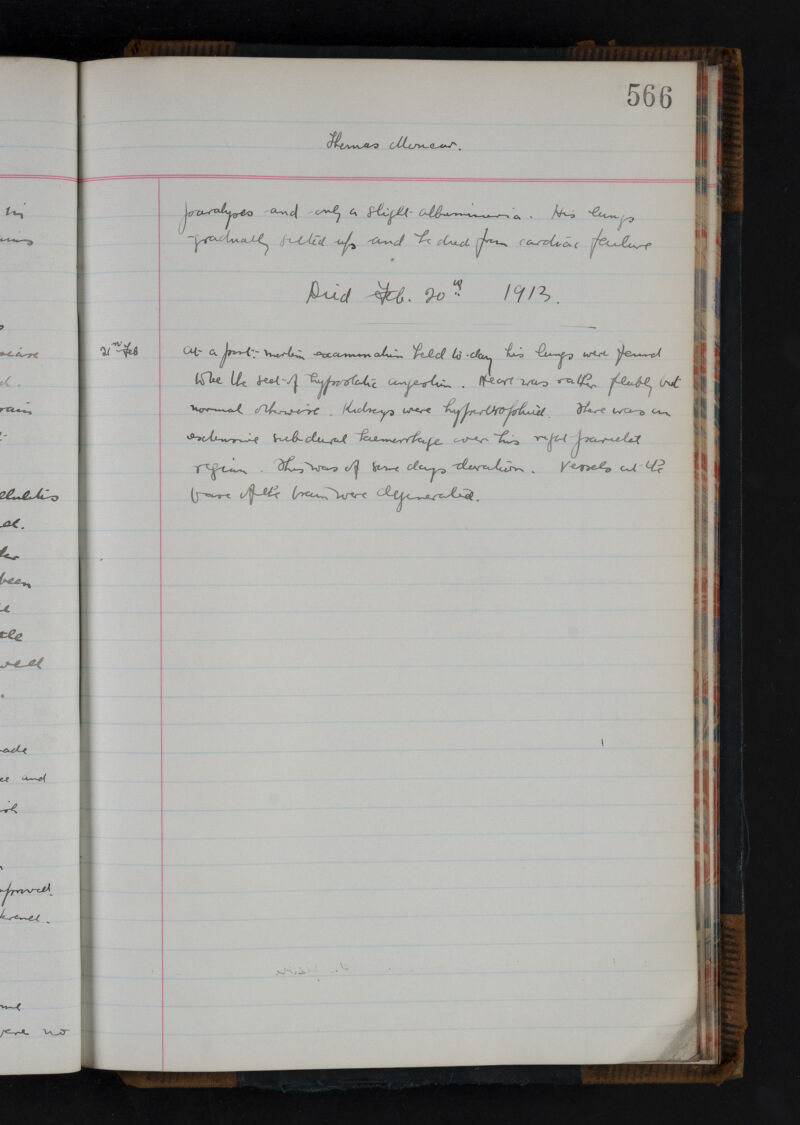 566
Thomas Moncur.
paralyses and only a slight albuminuria. His lungs
gradually silted up and he died from cardiac failure
Died Feb. 20th 1913.
21st Feb At a post-mortem examination held to-day his lungs were found
to be the seat of hypostatic congestion. Heart was rather flabby but
normal otherwise. Kidneys were hypertrophied. There was an
extensive subdural haemorrhage over his right parietal
region. This was of some days duration. Vessels at the
base of the brain were degenerated.
been
and
were no